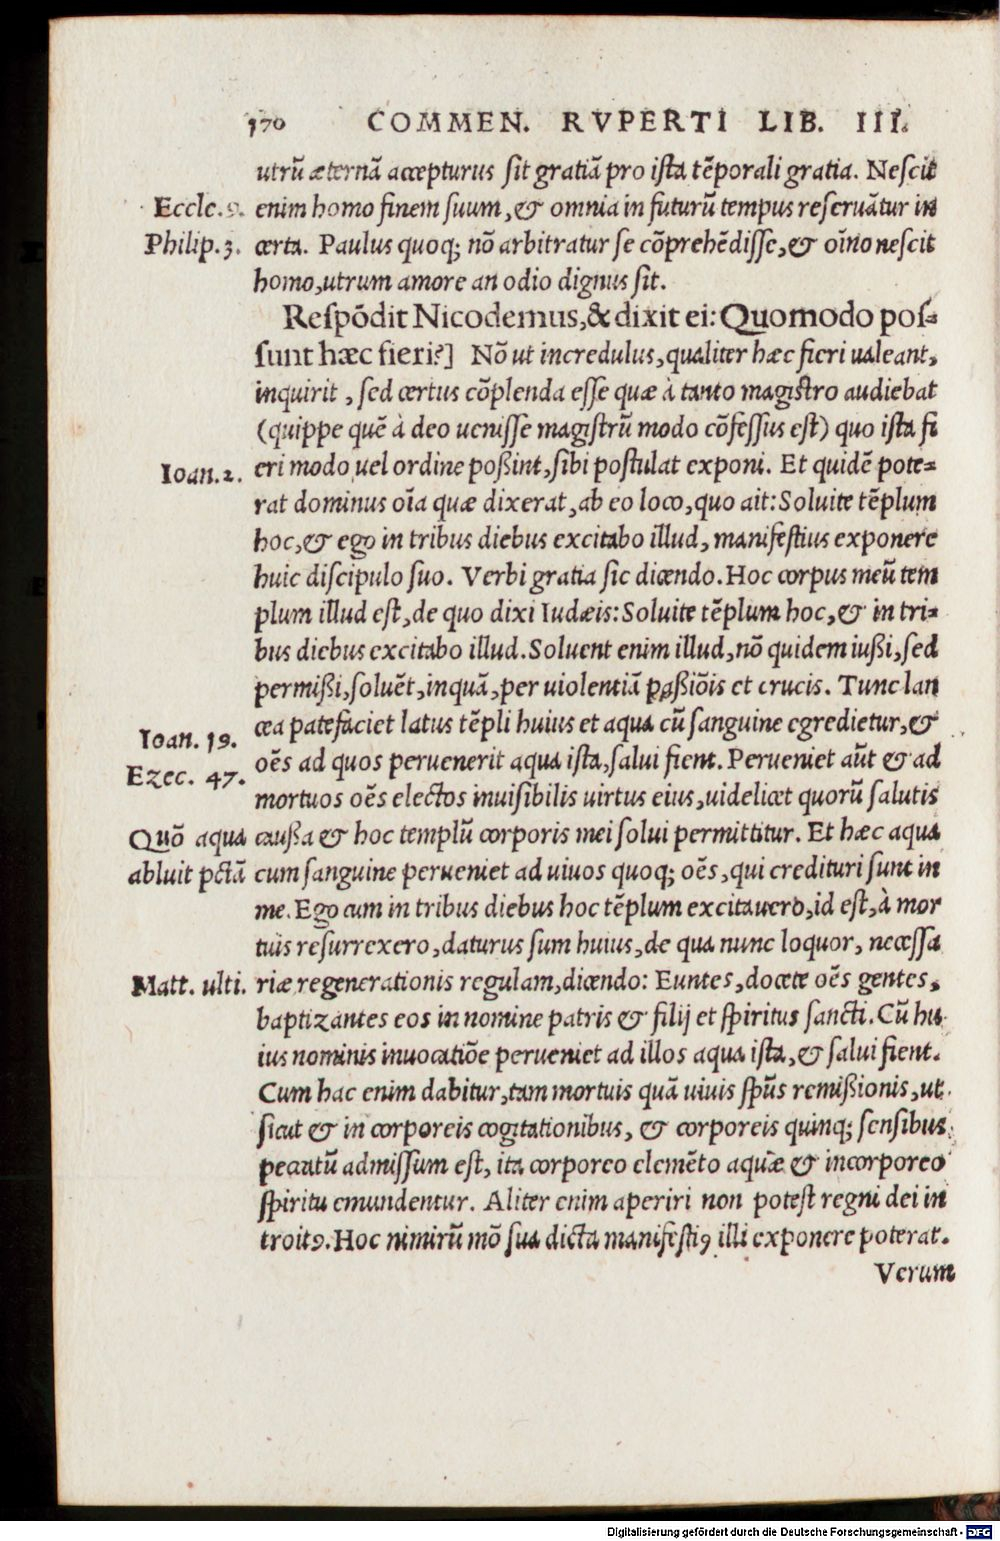 170 COMMEN. RVPERTI LIB. III.
utrũ æternã accepturus ſit gratiã pro iſta tẽporali gratia. Neſcit
Eccle. 9. enim homo finem ſuum, & omnia in futurũ tempus reſeruãtur in
Philip. 3. certa. Paulus quoq; nõ arbitratur ſe cõprehẽdiſſe, & oĩno neſcit
homo, utrum amore an odio dignus ſit.
Reſpõdit Nicodemus, & dixit ei: Quomodo poſ-
ſunt hæc fieri?] Nõ ut incredulus, qualiter hæc fieri ualeant,
inquirit, ſed certus cõplenda eſſe quæ à tanto magiſtro audiebat
(quippe quẽ à deo ueniſſe magiſtrũ modo cõfeſſus eſt) quo iſta fi
Ioan. 2. eri modo uel ordine poßint, ſibi poſtulat exponi. Et quidẽ pote-
rat dominus oĩa quæ dixerat, ab eo loco, quo ait: Soluite tẽplum
hoc, & ego in tribus diebus excitabo illud, manifeſtius exponere
huic diſcipulo ſuo. Verbi gratia ſic dicendo. Hoc corpus meũ tem
plum illud eſt, de quo dixi Iudæis: Soluite tẽplum hoc, & in tri-
bus diebus excitabo illud. Soluent enim illud, nõ quidem iußi, ſed
permißi, ſoluẽt, inquã, per uiolentiã paßiõis et crucis. Tunc lan
Ioan. 19. cea patefaciet latus tẽpli huius et aqua cũ ſanguine egredietur, &
Ezec. 47. oẽs ad quos peruenerit aqua iſta, ſalui fient. Perueniet aũt & ad
mortuos oẽs electos inuiſibilis uirtus eius, uidelicet quorũ ſalutis
Quõ aqua caußa & hoc templũ corporis mei ſolui permittitur. Et hæc aqua
abluit pctã cum ſanguine perueniet ad uiuos quoq; oẽs, qui credituri ſunt in
me. Ego cum in tribus diebus hoc tẽplum excitauero, id eſt, à mor
tuis reſurrexero, daturus ſum huius, de qua nunc loquor, neceſſa
Matt. ulti. riæ regenerationis regulam, dicendo: Euntes, docete oẽs gentes,
baptizantes eos in nomine patris & filij et ſpiritus ſancti. Cũ hu
ius nominis inuocatiõe perueniet ad illos aqua iſta, & ſalui fient.
Cum hac enim dabitur, tam mortuis quã uiuis ſpũs remißionis, ut
ſicut & in corporeis cogitationibus, & corporeis quinq; ſenſibus
peccatũ admiſſum eſt, ita corporeo elemẽto aquæ & incorporeo
ſpiritu emundentur. Aliter enim aperiri non poteſt regni dei in
troitꝯ. Hoc nimirũ mõ ſua dicta manifeſtiꝯ illi exponere poterat.
Verum
Digitalisierung gefördert durch die Deutsche Forschungsgemeinschaft - DFG